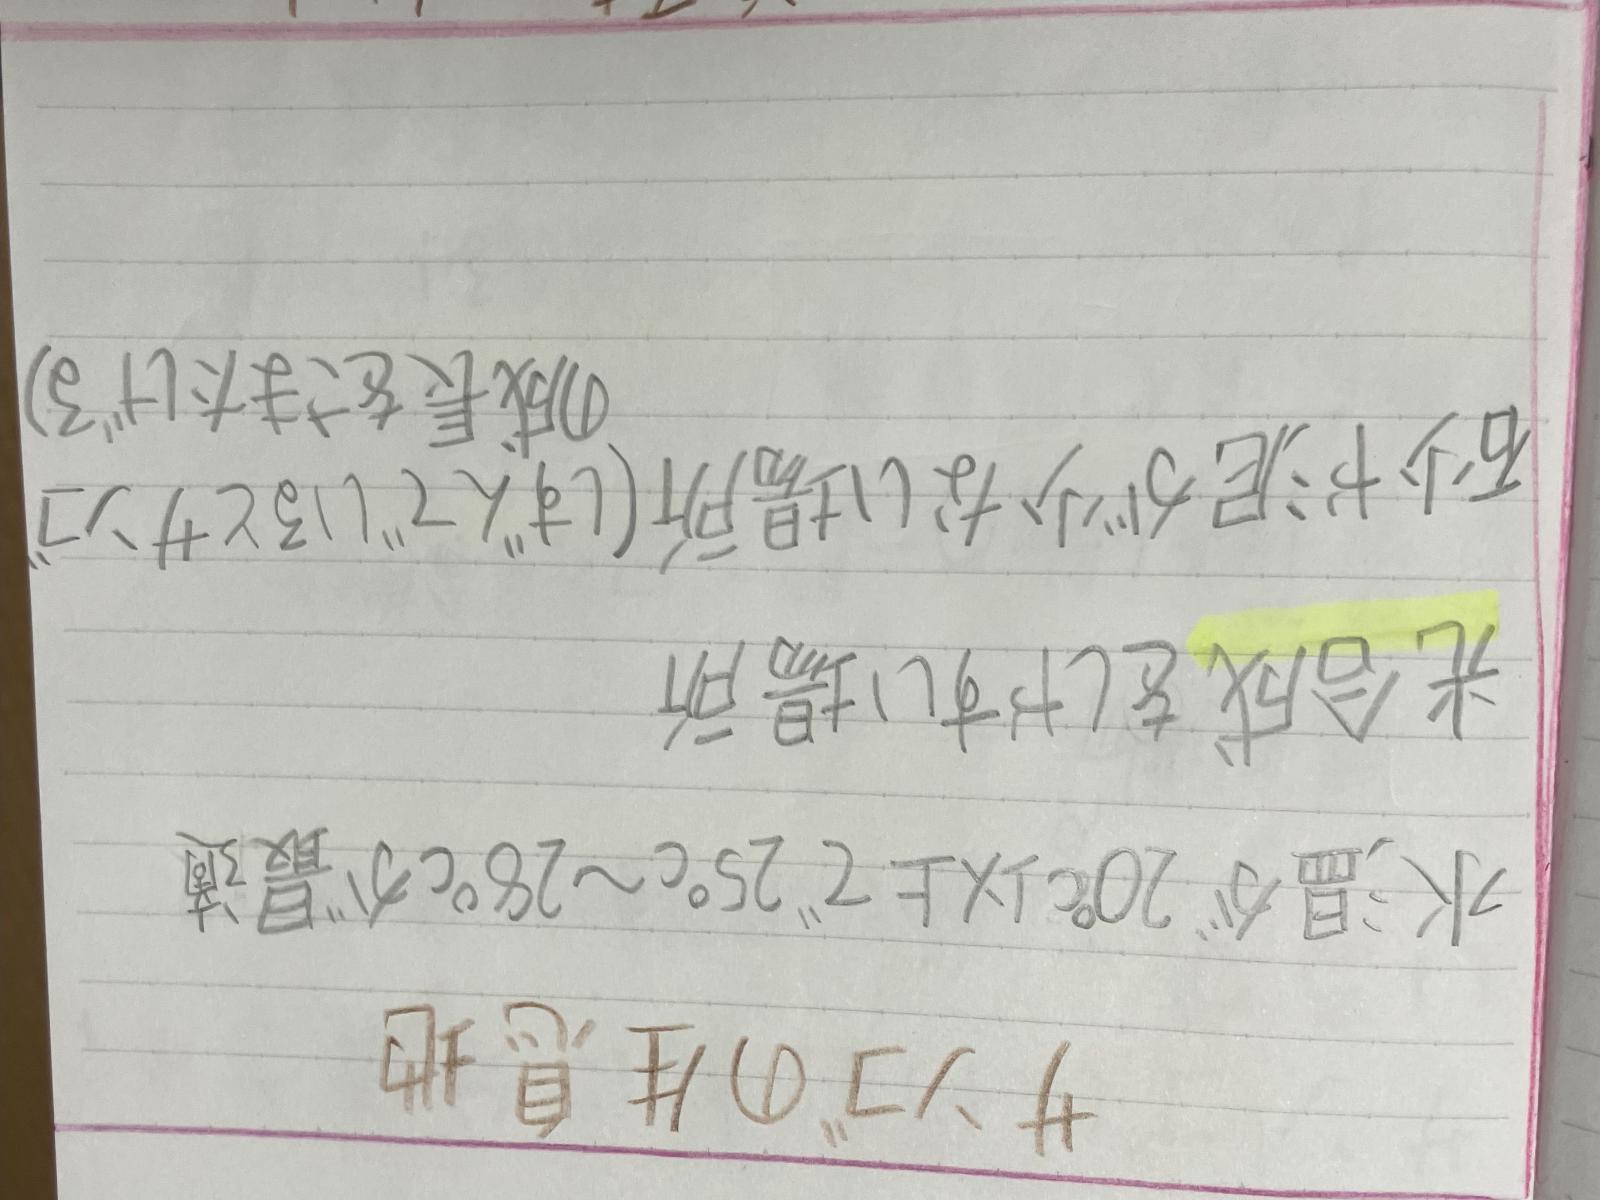 サンゴの生息地
水温が20℃以上で25℃〜28℃が最適
光合成をしやすい場所
砂や泥が少ない場所(しずんでいるとサンゴ
の成長をさまたげる)